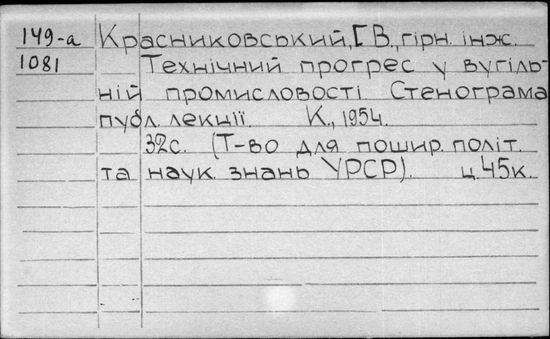 149-а Красниковський, Г В., гірн. інж.
1081 Технічний прогрес у вугіль-
ній промисловості Стенограма
публ. лекції. К., 1954.
32с. (Т-во для пошир. політ.
та наук. знань УРСР). ц. 45к.